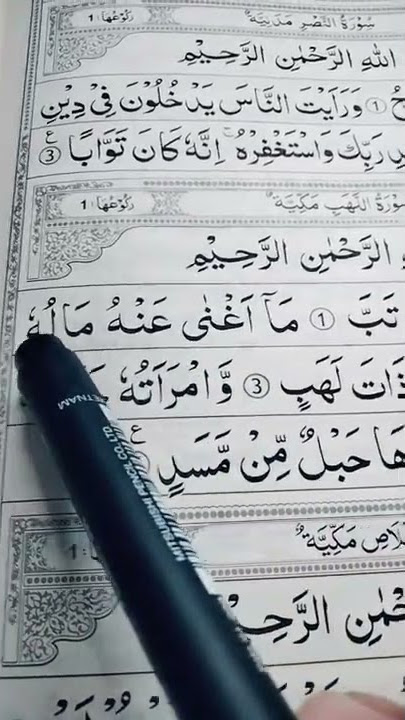 سُوْرَةُ النَّصْرِ مَدَنِيَّةٌ رُكُوْعُهَا: 1
اللّٰهِ الرَّحْمٰنِ الرَّحِيْمِ
① وَرَاَيْتَ النَّاسَ يَدْخُلُوْنَ فِيْ دِيْنِ
رَبِّكَ وَاسْتَغْفِرْهُ ؕ اِنَّهٗ كَانَ تَوَّابًا ③ ع
سُوْرَةُ اللَّهَبِ مَكِّيَّةٌ رُكُوْعُهَا: 1
الرَّحْمٰنِ الرَّحِيْمِ
تَبَّ ① مَاۤ اَغْنٰى عَنْهُ مَالُهٗ
ذَاتَ لَهَبٍ ③ وَّامْرَاَتُهٗ
هَا حَبْلٌ مِّنْ مَّسَدٍ ع
مَكِّيَّةٌ 1
الرَّحِيْ
ETNAM